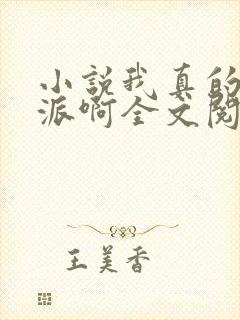 小説我真的
派啊全文閱
王美香